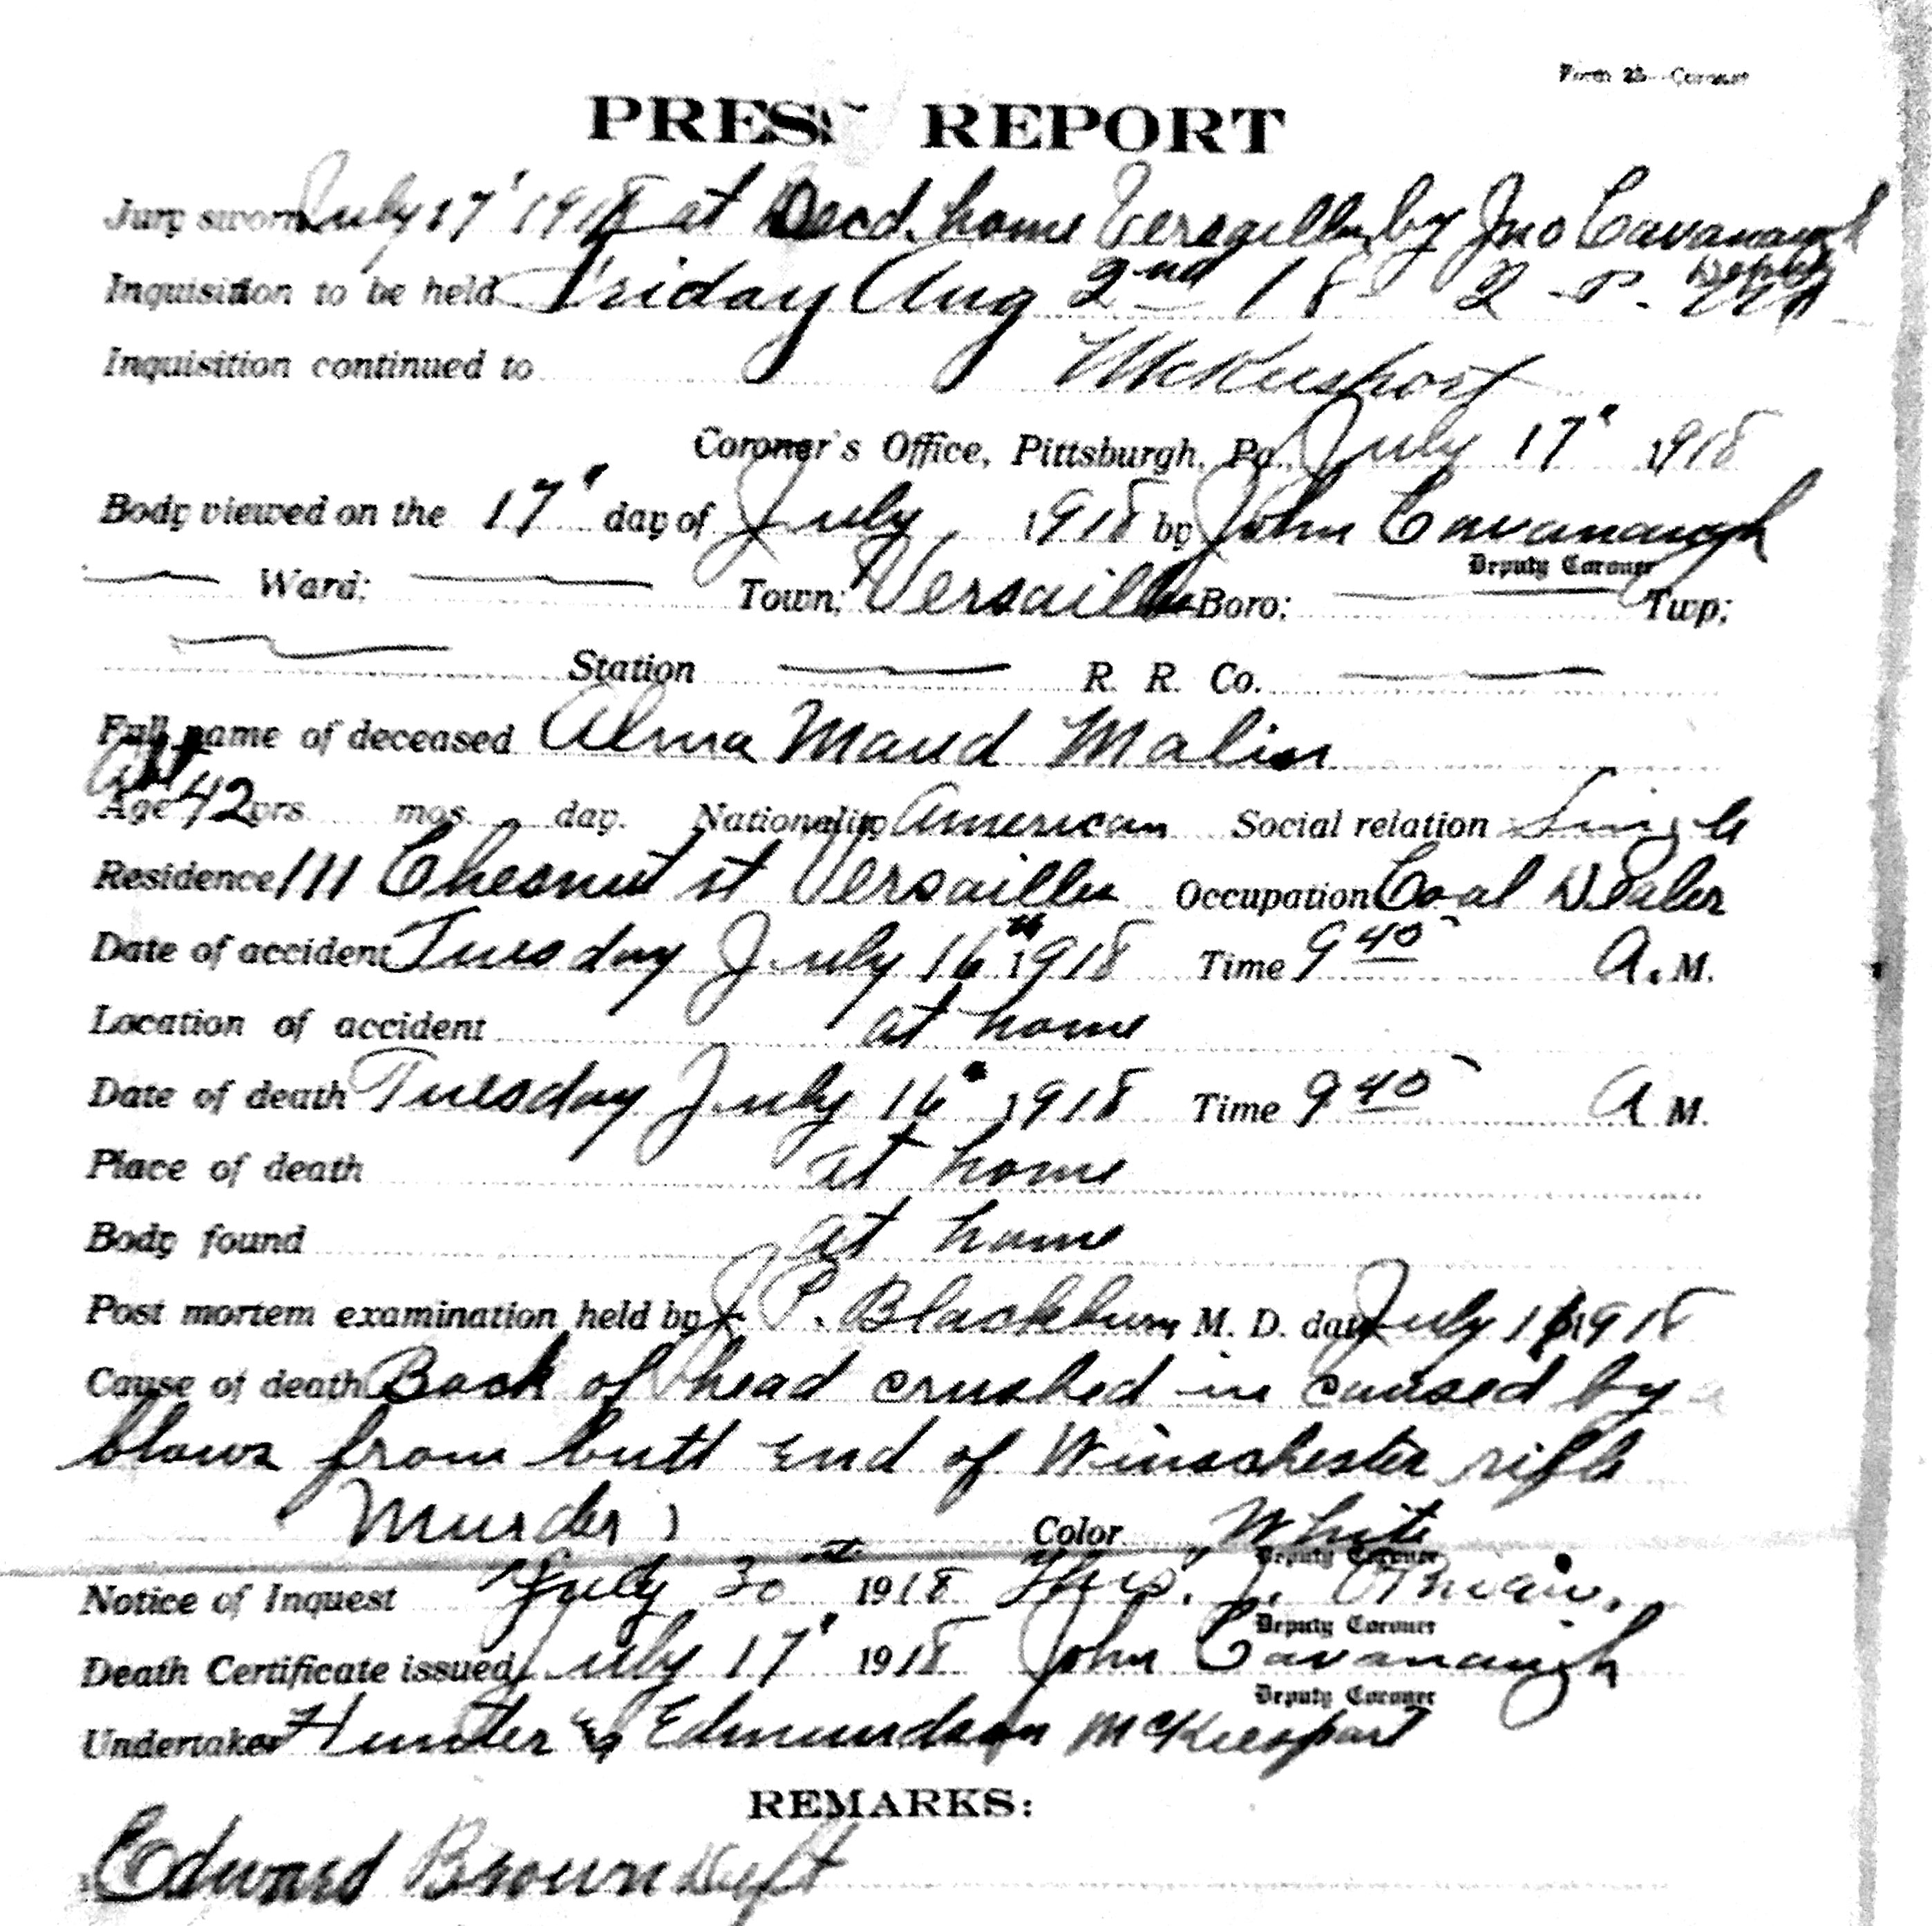 Form 23—Coroner
PRESS REPORT
Jury sworn July 17" 1918 at Decd. home Versailles by Jno Cavanaugh
Deputy
Inquisition to be held Friday Aug 2nd 18 2 P. M
Inquisition continued to McKeesport
Coroner's Office, Pittsburgh, Pa., July 17" 1918
Body viewed on the 17" day of July 1918 by John Cavanaugh
Deputy Coroner
Ward; Town; Versailles Boro; Twp;
Station R. R. Co.
Full name of deceased Alma Maud Malin
Abt
Age 42 yrs. mos. day. Nationality American Social relation Single
Residence 111 Chesnut st Versailles Occupation Coal Dealer
Date of accident Tuesday July 16" 1918 Time 9 40 A. M.
Location of accident at home
Date of death Tuesday July 16" 1918 Time 9 40 A M.
Place of death at home
Body found at home
Post mortem examination held by J. P. Blackburn M. D. day July 16 1918
Cause of death Back of head crushed in caused by
blows from butt end of Winschester rifle
Murder Color White
Deputy Coroner
Notice of Inquest July 30 1918 Thos.
Deputy Coroner
Death Certificate issued July 17" 1918 John Cavanaugh
Deputy Coroner
Undertaker Hunter & Edmundson McKeesport
REMARKS:
Edward Brown Deft